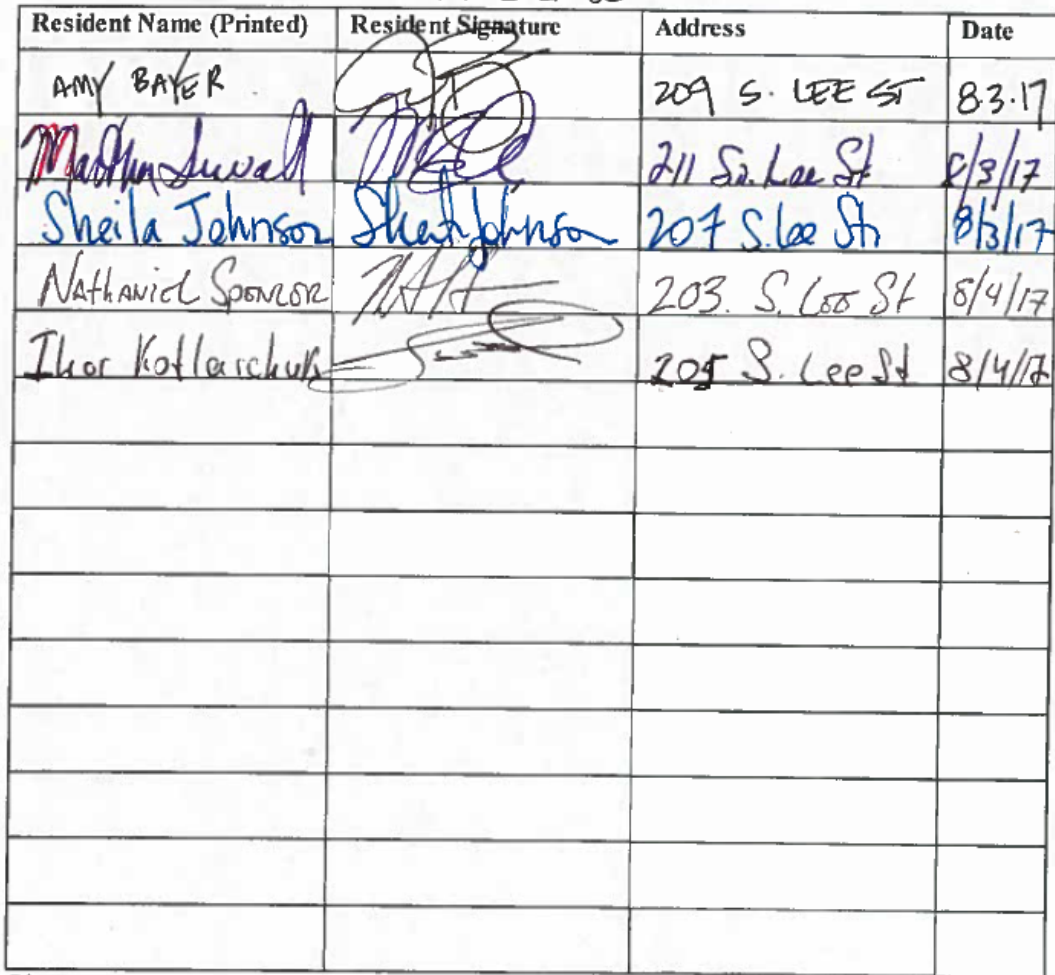 Resident Name (Printed) Resident Signature Address Date
AMY BAYER 209 S. LEE ST 8.3.17
211 So. Lee St 8/3/17
Sheila Johnson Sheila Johnson 207 S. Lee St. 8/3/17
NAthANiel SpENCER 203. S. Lee St 8/4/17
Ihor Kotlarchuk 205 S. Lee St 8/4/17